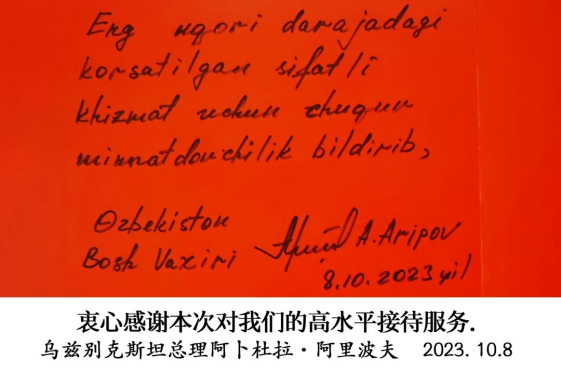 Eng yuqori darajadagi
korsatilgan sifatli
khizmat uchun chuqur
minnatdorchilik bildirib,
Ozbekiston
Bosh Vaziri A. Aripov
8.10.2023 yil
衷心感谢本次对我们的高水平接待服务.
乌兹别克斯坦总理阿卜杜拉·阿里波夫 2023.10.8